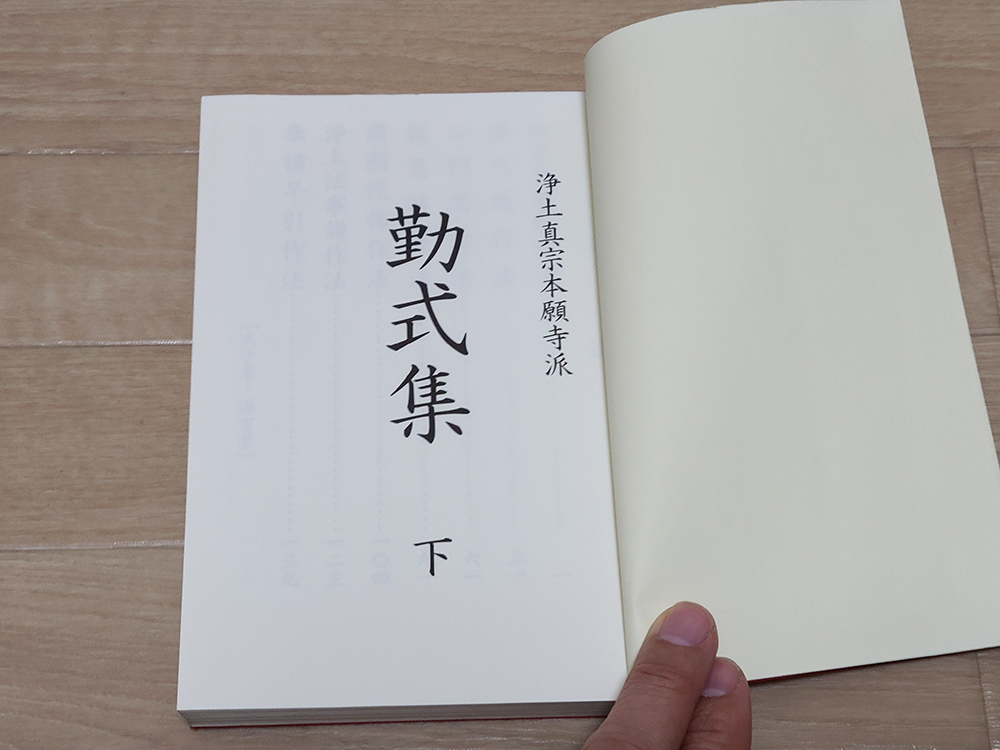 浄土真宗本願寺派
勤式集 下